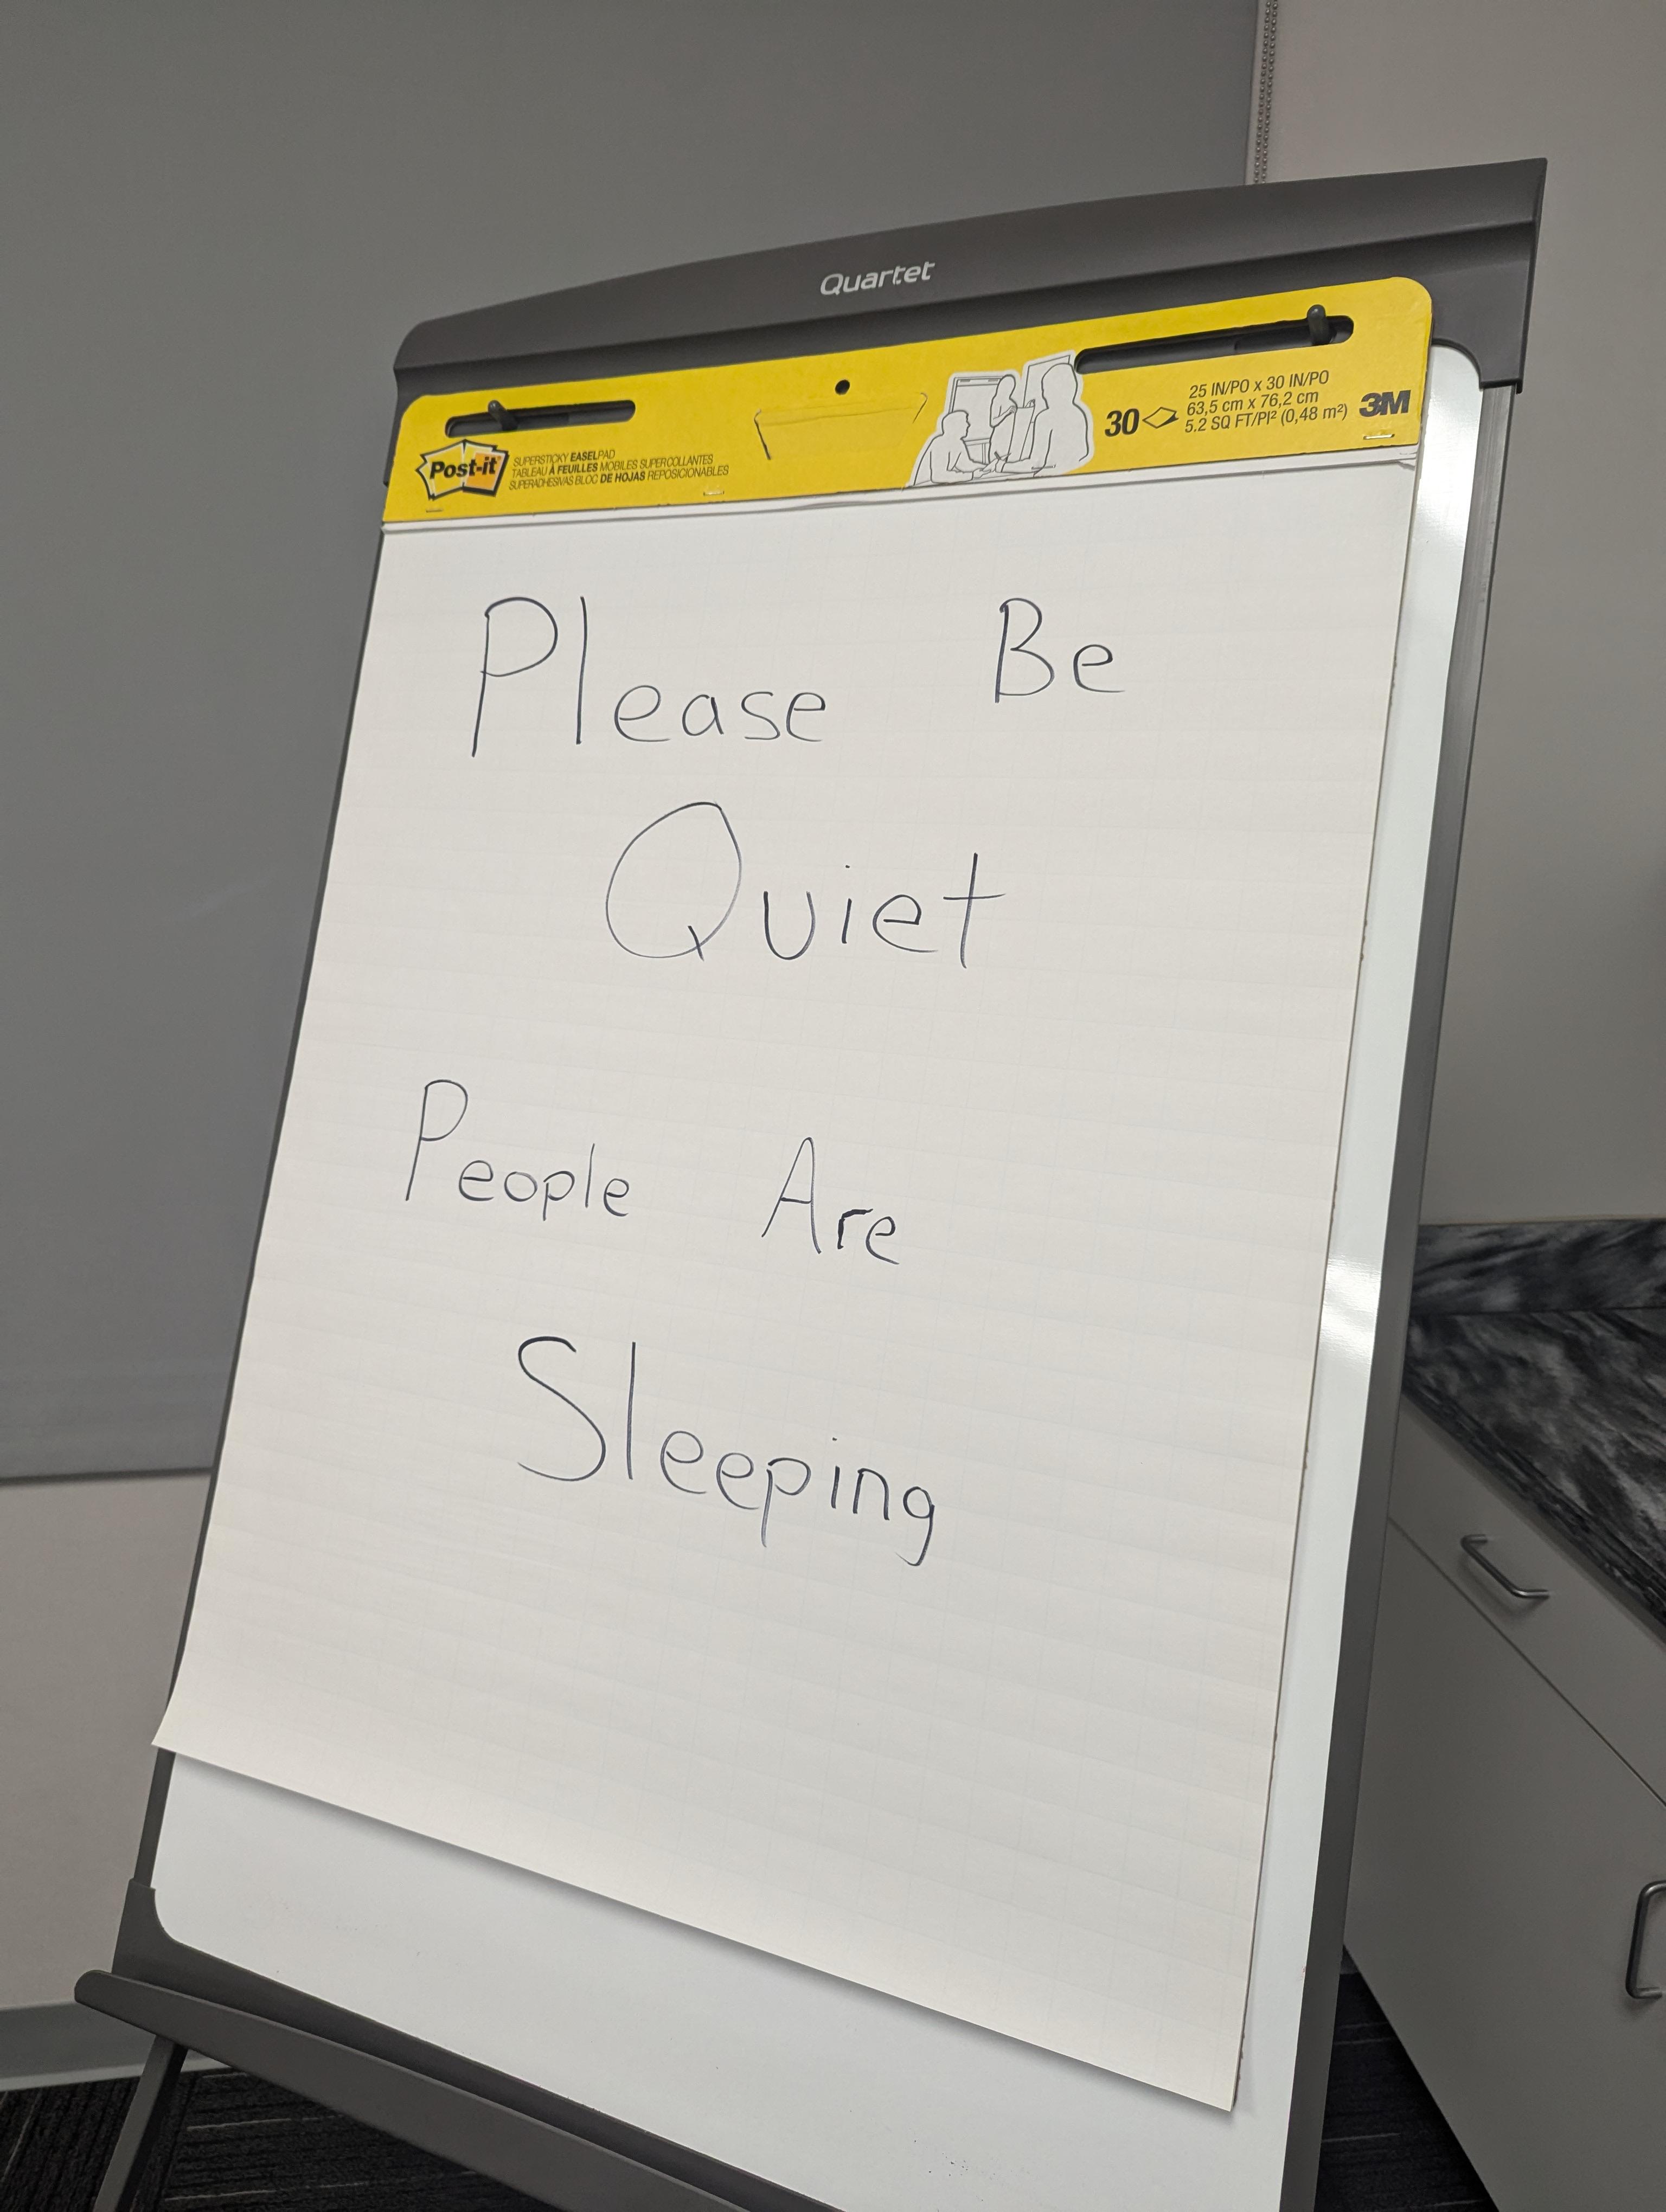 Quartet
Post-it
SUPERSTICKY EASEL PAD
TABLEAU À FEUILLES MOBILES SUPERCOLLANTES
SUPERADHESIVAS BLOC DE HOJAS REPOSICIONABLES
30
25 IN/PO x 30 IN/PO
63,5 cm x 76,2 cm
5.2 SQ FT/PI² (0,48 m²)
3M
Please Be
Quiet
People Are
Sleeping